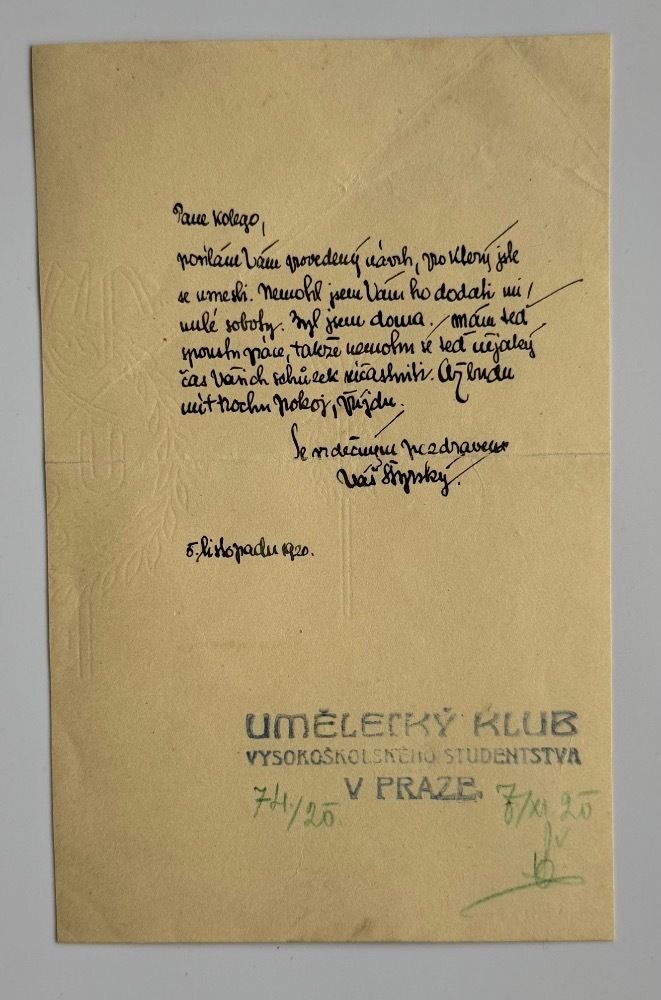 Pane kolego,
posílám Vám provedený návrh, pro který jste
se umesli. Nemohl jsem Vám ho dodati mi/
nulé soboty. Byl jsem doma. mám teď
spoustu práce, takže nemohu se teď nějaký
čas Vašich schůzek súčastniti. Až budu
mít trochu pokoj, přijdu.
Se srdečným pozdravem
Váš Štyrský.
5. listopadu 1920.
UMĚLECKÝ KLUB
VYSOKOŠKOLSKÉHO STUDENTSTVA
V PRAZE
74/20. 7/XI 20